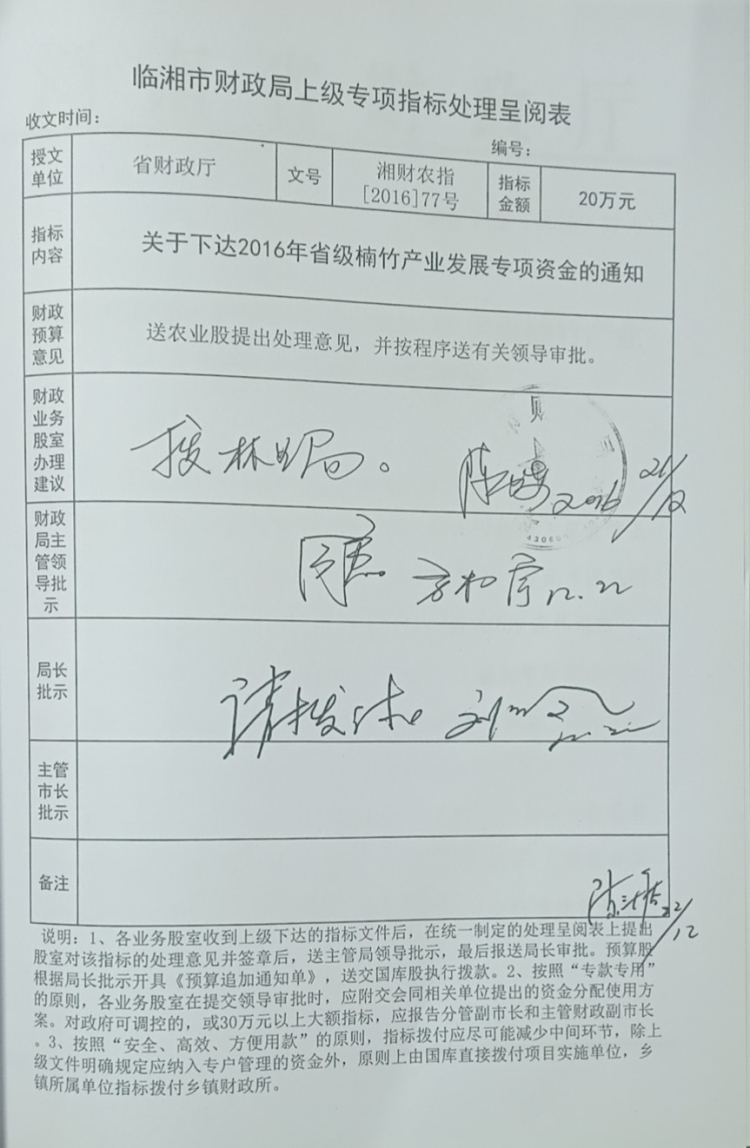 临湘市财政局上级专项指标处理呈阅表
收文时间：
编号：
授文
单位
省财政厅
文号
湘财农指
[2016]77号
指标
金额
20万元
指标
内容
关于下达2016年省级楠竹产业发展专项资金的通知
财政
预算
意见
送农业股提出处理意见，并按程序送有关领导审批。
财政
业务
股室
办理
建议
拨林业局。
2016 21/12
财政
局主
管领
导批
示
同意。
12.22
局长
批示
请拨付
主管
市长
批示
备注
22/12
说明：1、各业务股室收到上级下达的指标文件后，在统一制定的处理呈阅表上提出
股室对该指标的处理意见并签章后，送主管局领导批示，最后报送局长审批。预算股
根据局长批示开具《预算追加通知单》，送交国库股执行拨款。2、按照“专款专用”
的原则，各业务股室在提交领导审批时，应附交会同相关单位提出的资金分配使用方
案。对政府可调控的，或30万元以上大额指标，应报告分管副市长和主管财政副市长
。3、按照“安全、高效、方便用款”的原则，指标拨付应尽可能减少中间环节，除上
级文件明确规定应纳入专户管理的资金外，原则上由国库直接拨付项目实施单位，乡
镇所属单位指标拨付乡镇财政所。